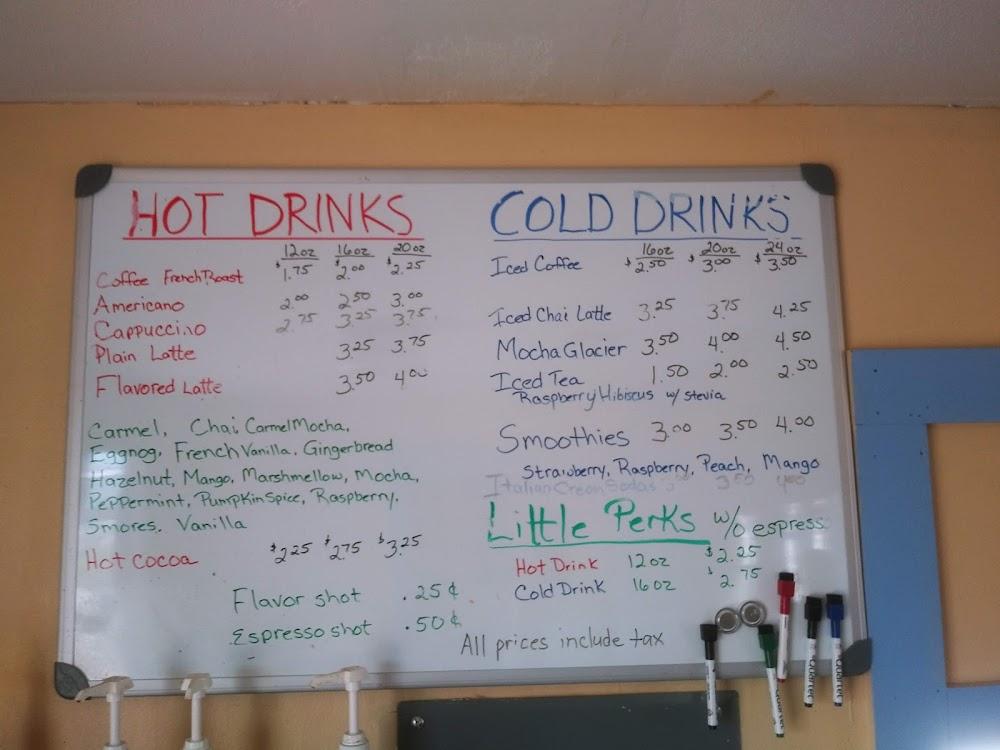 HOT DRINKS
12oz 16oz 20oz
Coffee French Roast $1.75 $2.00 $2.25
Americano 2.00 2.50 3.00
Cappuccino 2.75 3.25 3.75
Plain Latte 3.25 3.75
Flavored Latte 3.50 4.00
Carmel, Chai, Carmel Mocha,
Eggnog, French Vanilla, Gingerbread
Hazelnut, Mango, Marshmellow, Mocha,
Peppermint, Pumpkin Spice, Raspberry,
Smores, Vanilla
Hot Cocoa $2.25 $2.75 $3.25
Flavor shot .25¢
Espresso shot .50¢
COLD DRINKS
16oz 20oz 24oz
Iced Coffee $2.50 $3.00 $3.50
Iced Chai Latte 3.25 3.75 4.25
Mocha Glacier 3.50 4.00 4.50
Iced Tea 1.50 2.00 2.50
Raspberry Hibiscus w/ stevia
Smoothies 3.00 3.50 4.00
Strawberry, Raspberry, Peach, Mango
Italian Cream Sodas 3.50 4.00
Little Perks w/o espresso
Hot Drink 12oz $2.25
Cold Drink 16oz $2.75
All prices include tax
Quartet
Quartet